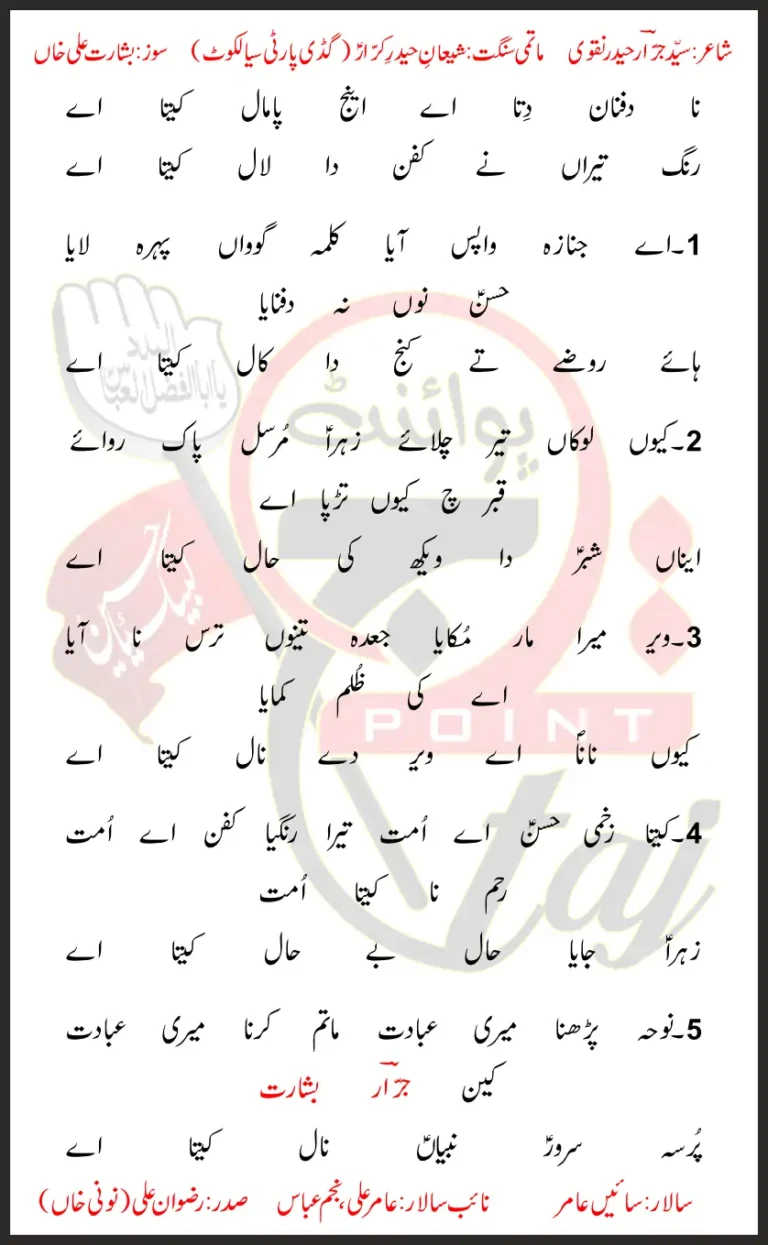 شاعر: سیّد جرّار حیدر نقوی ماتمی سنگت: شیعانِ حیدرِ کرّارؑ (گڈی پارٹی سیالکوٹ) سوز: بشارت علی خاں
نا دفنان دِتا اے اینج پامال کیتا اے
رنگ تیراں نے کفن دا لال کیتا اے
1۔اے جنازہ واپس آیا کلمہ گوواں پہرہ لایا
حسنؑ نوں نہ دفنایا
ہائے روضے تے کنج دا کال کیتا اے
2۔کیوں لوکاں تیر چلائے زہراؑ مُرسل پاک روائے
قبر چ کیوں تڑپا اے
ایناں شبرؑ دا ویکھ کی حال کیتا اے
3۔ویر میرا مار مُکایا جعدہ تینوں ترس نا آیا
اے کی ظُلم کمایا
کیوں ناناؐ اے ویر دے نال کیتا اے
4۔کیتا زخمی حسنؑ اے اُمت تیرا رنگیا کفن اے اُمت
رحم نا کیتا اُمت
زہراؑ جایا حال بے حال کیتا اے
5۔نوحہ پڑھنا میری عبادت ماتم کرنا میری عبادت
کین جرّار بشارت
پُرسہ سرورؑ نبیاںؑ نال کیتا اے
سالار: سائیں عامر نائب سالار: عامر علی، نجم عباس صدر: رضوان علی (نونی خاں)
پوائنٹ
یا ابا الفضل العباس
لبیک یا حسین
POINT
taj